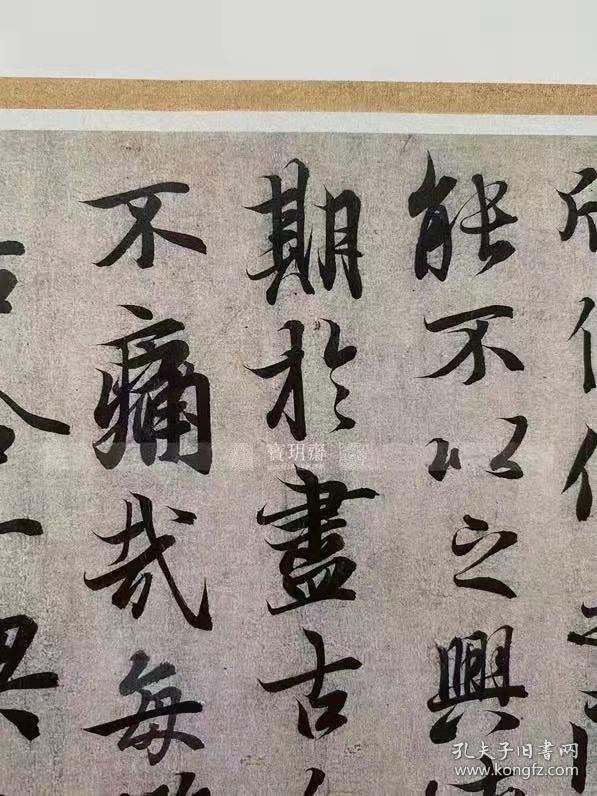 能不以之興
期於盡古
不痛哉每
寶玥齋
孔夫子旧书网
www.kongfz.com